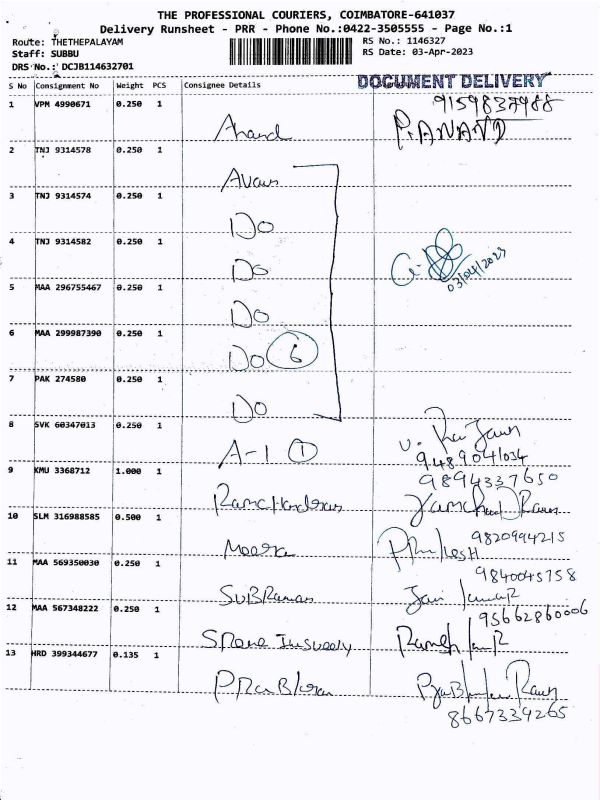 THE PROFESSIONAL COURIERS, COIMBATORE-641037
Delivery Runsheet - PRR - Phone No.:0422-3505555 - Page No.:1
Route: THETHEPALAYAM
Staff: SUBBU
DRS No.: DCJB114632701
RS No.: 1146327
RS Date: 03-Apr-2023
DOCUMENT DELIVERY
S No Consignment No Weight PCS Consignee Details
1 VPM 4990671 0.250 1
9159837988
Anand P. ANAND
2 TNJ 9314578 0.250 1
3 TNJ 9314574 0.250 1
Do
4 TNJ 9314582 0.250 1
Do
03/04/2023
5 MAA 296755467 0.250 1
Do
6 MAA 299987390 0.250 1
Do 6
7 PAK 274580 0.250 1
Do
8 SVK 60347013 0.250 1
A-1 1
9489041034
9 KMU 3368712 1.000 1
9894337650
10 SLM 316988585 0.500 1
Meera
9820994215
11 MAA 569350030 0.250 1
9840045758
12 MAA 567348222 0.250 1
95662860006
13 HRD 399344677 0.135 1
8667339265